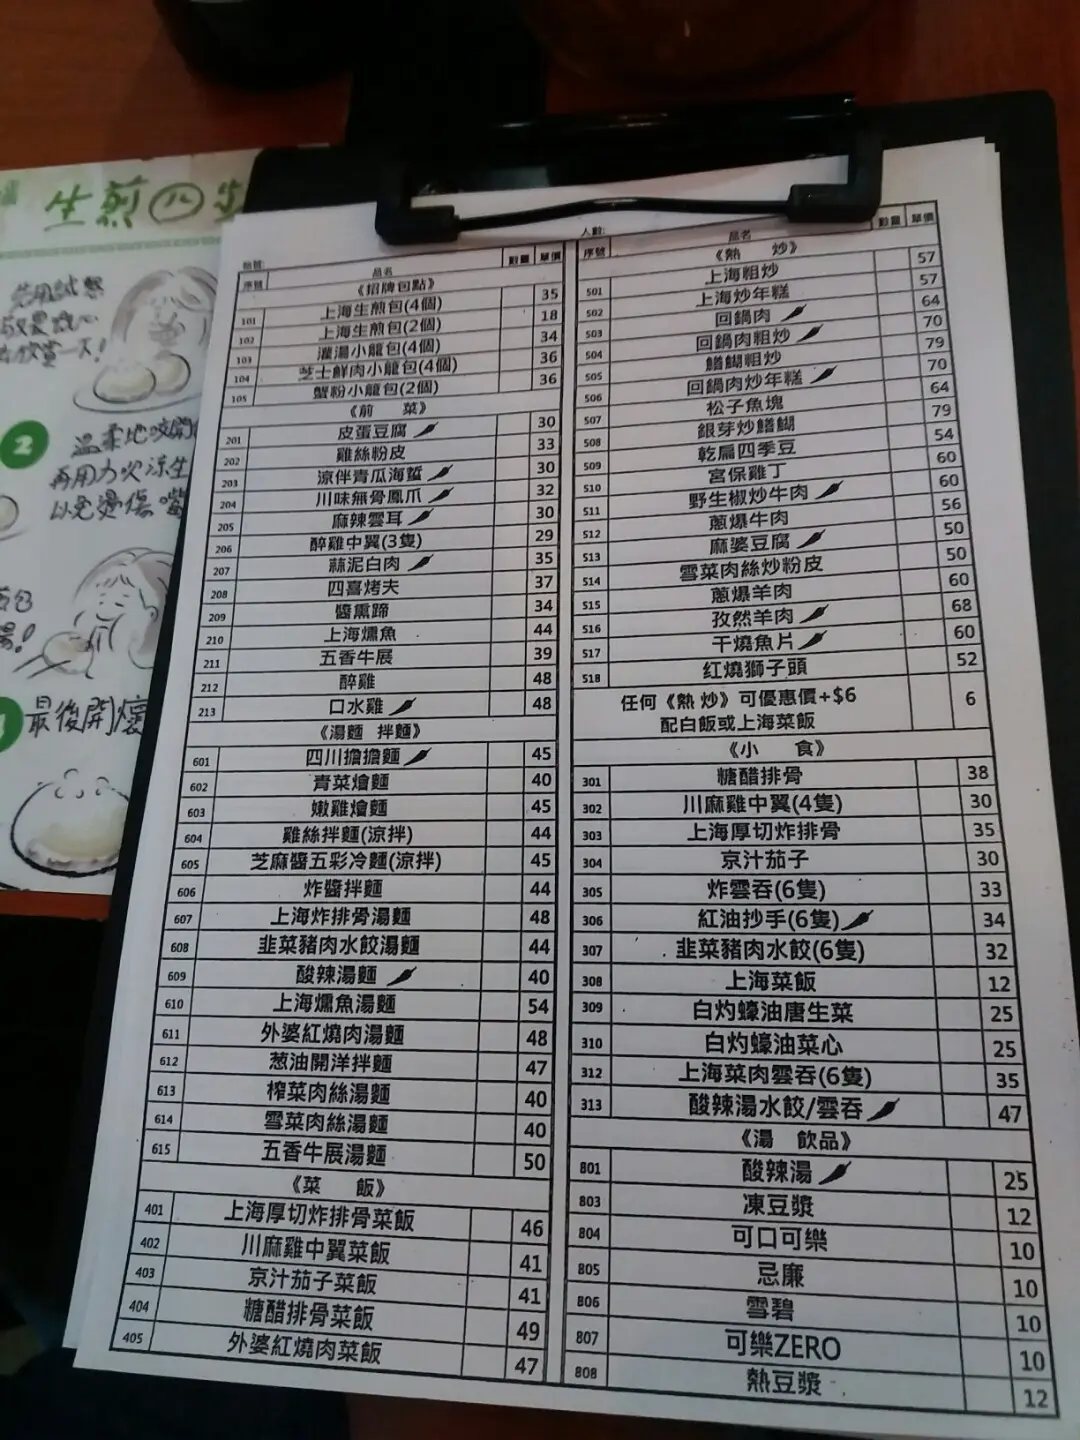 生煎八
2
溫柔地咬開
再用力吹涼生
以免燙傷嘴
最後開懷
枱號:
序號 品名 數量 單價
《招牌包點》
101 上海生煎包(4個) 35
102 上海生煎包(2個) 18
103 灌湯小龍包(4個) 34
104 芝士鮮肉小龍包(4個) 36
105 蟹粉小龍包(2個) 36
《前 菜》
201 皮蛋豆腐 30
202 雞絲粉皮 33
203 涼伴青瓜海蜇 30
204 川味無骨鳳爪 32
205 麻辣雲耳 30
206 醉雞中翼(3隻) 29
207 蒜泥白肉 35
208 四喜烤夫 37
209 醬熏蹄 34
210 上海燻魚 44
211 五香牛展 39
212 醉雞 48
213 口水雞 48
《湯麵 拌麵》
601 四川擔擔麵 45
602 青菜燴麵 40
603 嫩雞燴麵 45
604 雞絲拌麵(涼拌) 44
605 芝麻醬五彩冷麵(涼拌) 45
606 炸醬拌麵 44
607 上海炸排骨湯麵 48
608 韭菜豬肉水餃湯麵 44
609 酸辣湯麵 40
610 上海燻魚湯麵 54
611 外婆紅燒肉湯麵 48
612 葱油開洋拌麵 47
613 榨菜肉絲湯麵 40
614 雪菜肉絲湯麵 40
615 五香牛展湯麵 50
《菜 飯》
401 上海厚切炸排骨菜飯 46
402 川麻雞中翼菜飯 41
403 京汁茄子菜飯 41
404 糖醋排骨菜飯 49
405 外婆紅燒肉菜飯 47
人數:
序號 品名 數量 單價
《熱 炒》
501 上海粗炒 57
502 上海炒年糕 57
503 回鍋肉 64
504 回鍋肉粗炒 70
505 鱔糊粗炒 79
506 回鍋肉炒年糕 70
507 松子魚塊 64
508 銀芽炒鱔糊 79
509 乾扁四季豆 54
510 宮保雞丁 60
511 野生椒炒牛肉 60
512 蔥爆牛肉 56
513 麻婆豆腐 50
514 雪菜肉絲炒粉皮 50
515 蔥爆羊肉 60
516 孜然羊肉 68
517 干燒魚片 60
518 紅燒獅子頭 52
任何《熱 炒》可優惠價+$6 6
配白飯或上海菜飯
《小 食》
301 糖醋排骨 38
302 川麻雞中翼(4隻) 30
303 上海厚切炸排骨 35
304 京汁茄子 30
305 炸雲吞(6隻) 33
306 紅油抄手(6隻) 34
307 韭菜豬肉水餃(6隻) 32
308 上海菜飯 12
309 白灼蠔油唐生菜 25
310 白灼蠔油菜心 25
312 上海菜肉雲吞(6隻) 35
313 酸辣湯水餃/雲吞 47
《湯 飲品》
801 酸辣湯 25
803 凍豆漿 12
804 可口可樂 10
805 忌廉 10
806 雪碧 10
807 可樂ZERO 10
808 熱豆漿 12